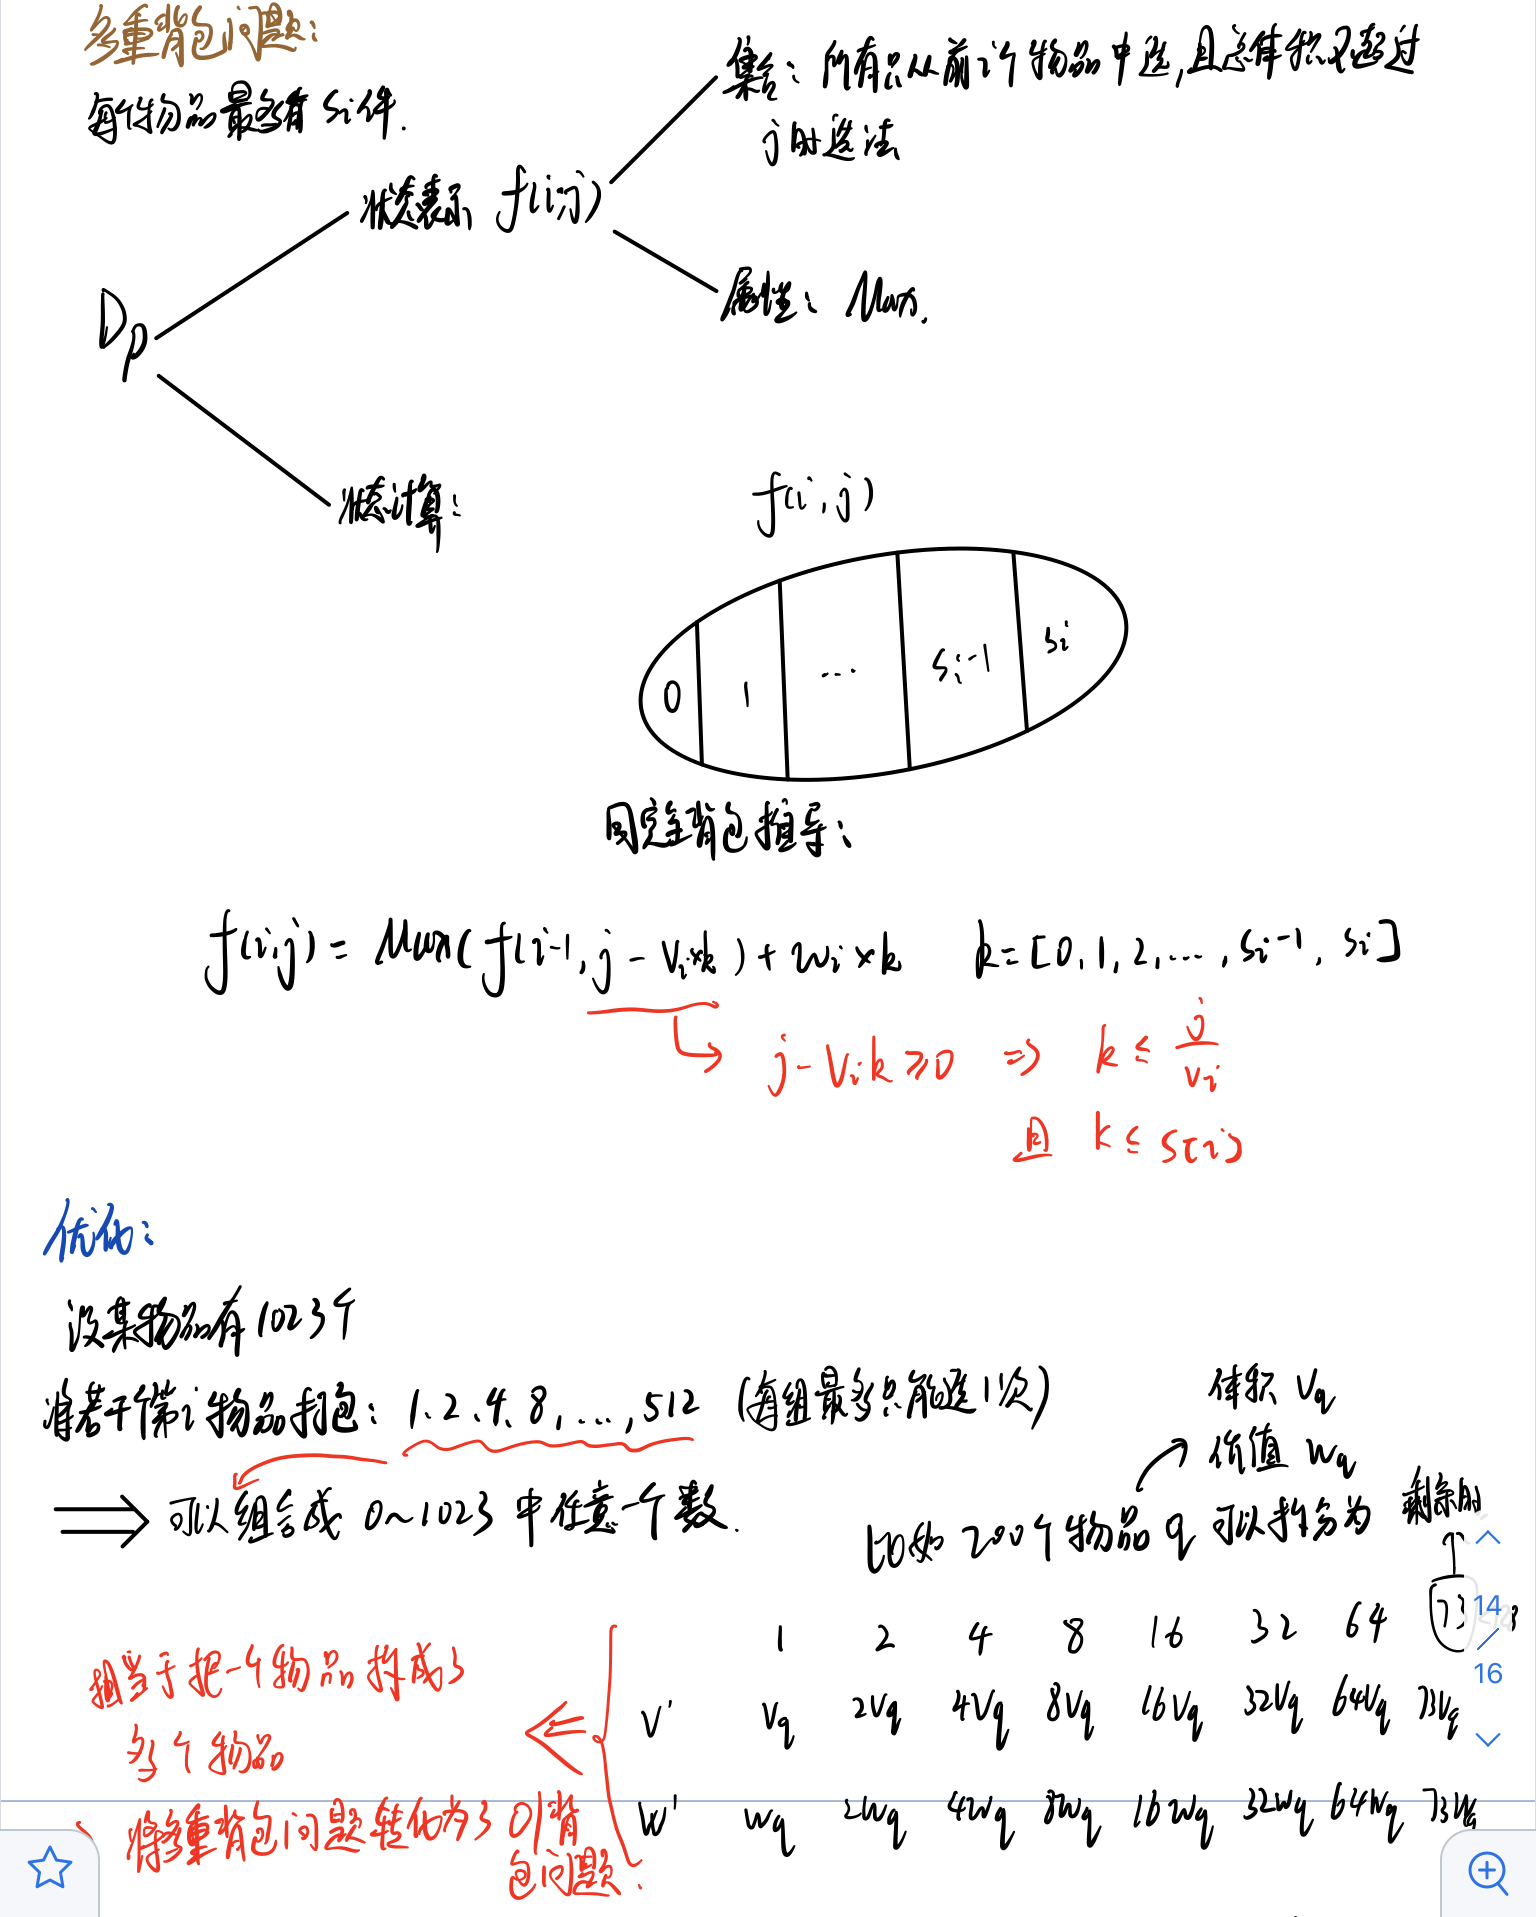 多重背包问题:
每件物品最多有 Si件.
集合: 所有只从前i个物品中选,且总体积不超过
j的选法
状态表示 f(i,j)
属性: Max.
Dp
状态计算:
f(i,j)
0 1 ... Si-1 Si
同完全背包推导:
f(i,j) = Max( f(i-1, j - Vi×k ) + wi×k k=[0,1,2,...,Si-1, Si]
j - Vi k ≥ 0 ⇒ k ≤ j/vi
且 k ≤ s[i]
优化:
设某物品有1023个
将若干个第i物品打包: 1、2、4、8,...,512 (每组最多只能选1次)
⇒ 可以组合成 0~1023 中任意一个数.
体积 Vq
价值 wq
比如 200个物品 q 可以拆分为 剩余的
1 2 4 8 16 32 64 73
V' Vq 2Vq 4Vq 8Vq 16Vq 32Vq 64Vq 73Vq
W' wq 2wq 4wq 8wq 16wq 32wq 64wq 73wq
相当于把一个物品拆成了
多个物品
将多重背包问题转化为了 01背
包问题.
14
/
16